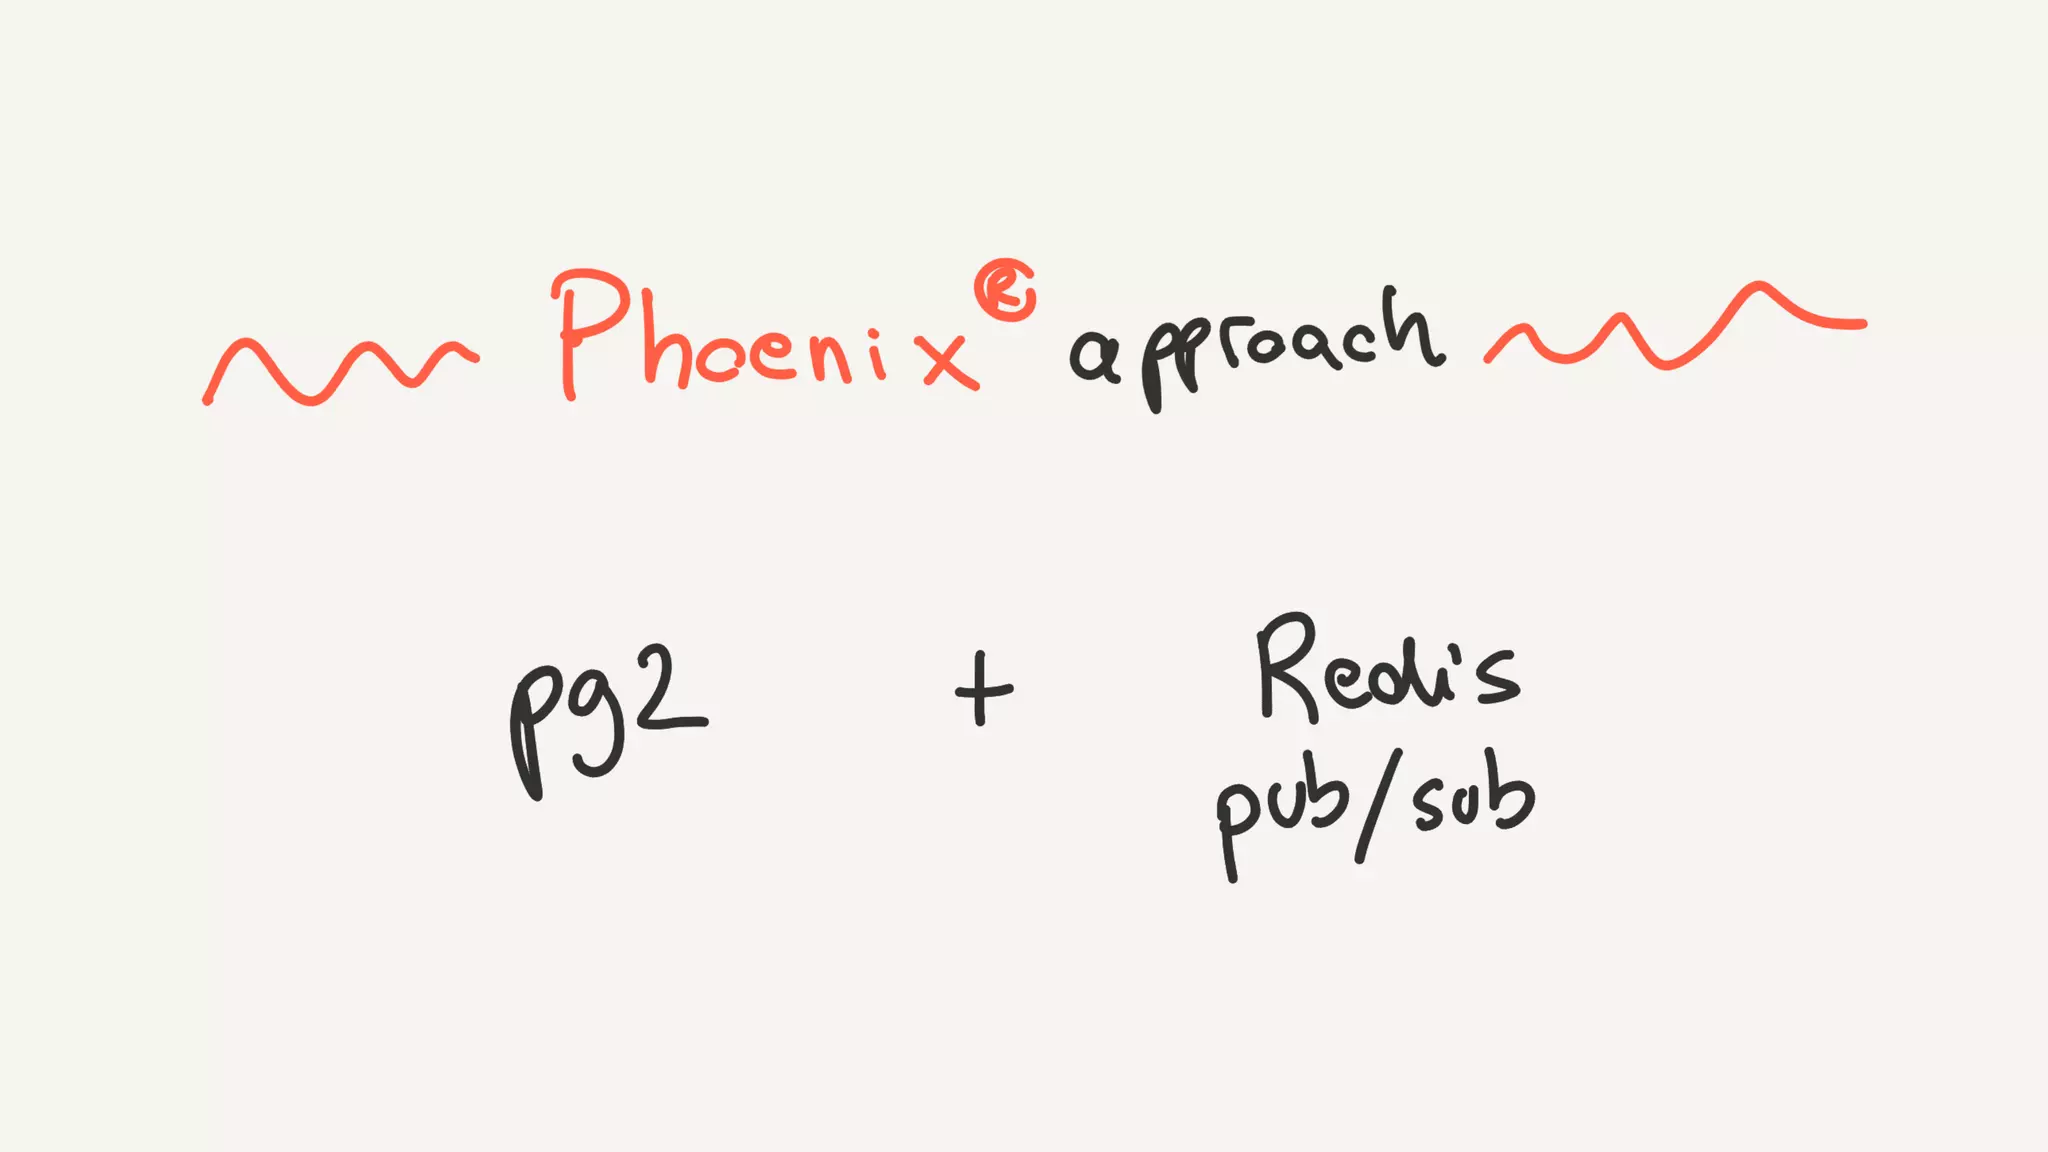 Phoenix® approach
pg2 + Redis
pub/sub